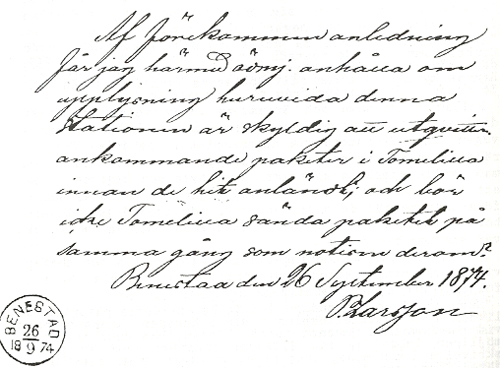 Af förekommen anledning
får jag härmed ödmj. anhålla om
upplysning huruvida denna
Stationen är skyldig att utqvitt.
ankommande paketer i Tomelilla
innan de hit anländt; och bör
icke Tomelilla sända paketet på
samma gång som notisen derom?
Benestad den 26 September 1874.
P. Larsson
BENESTAD
26
9
18 74